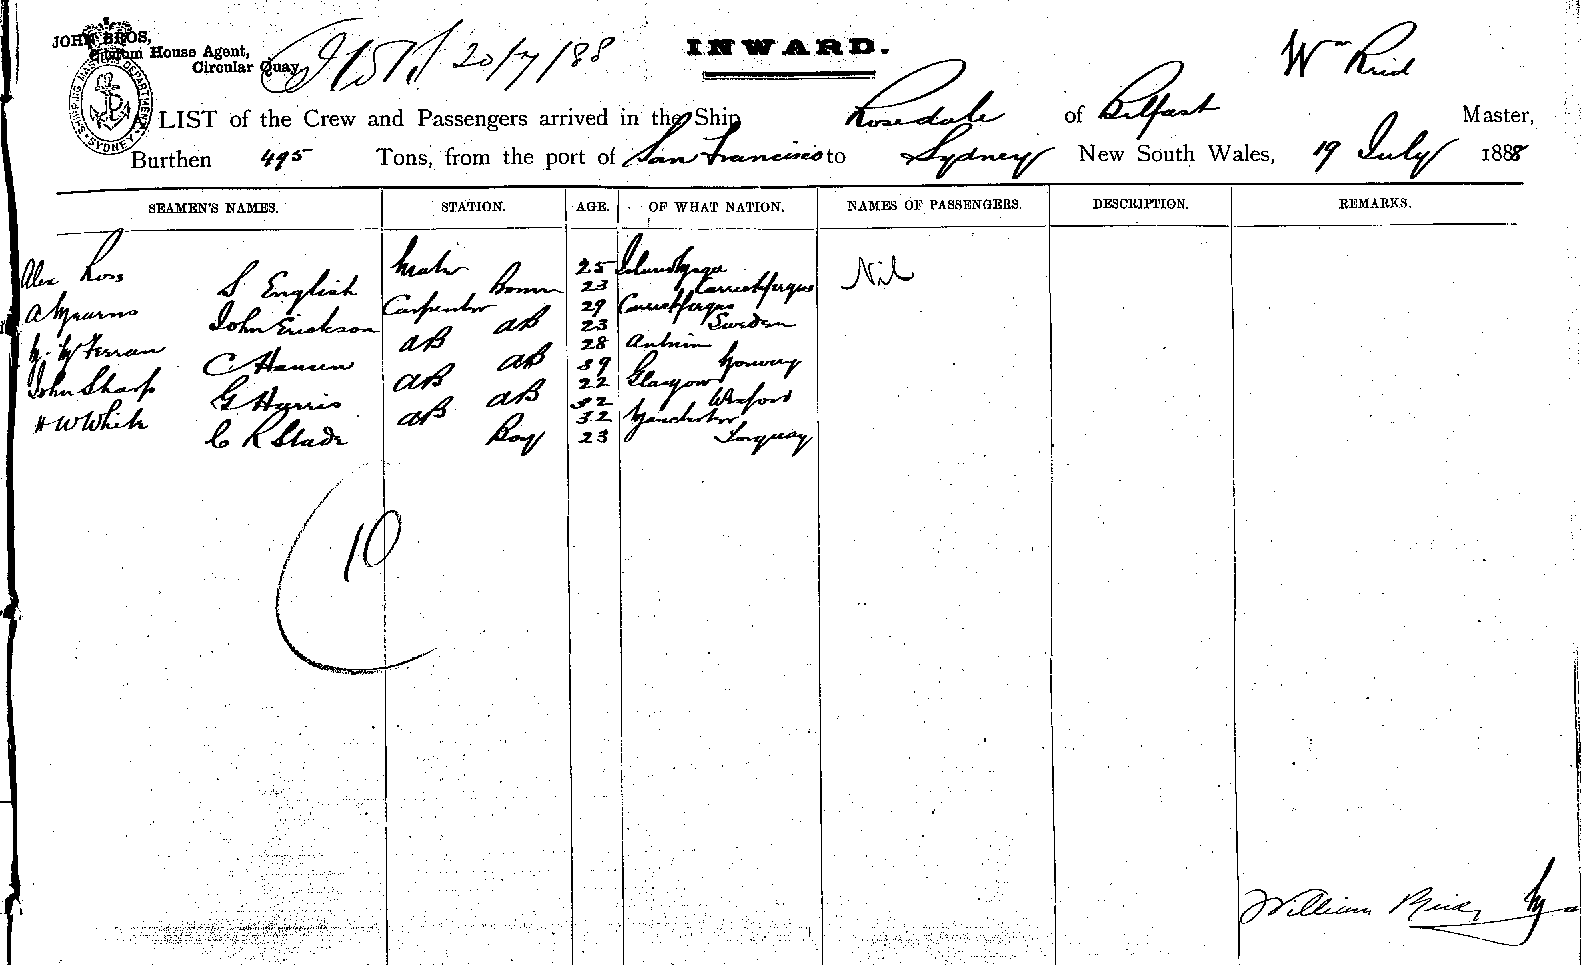 JOHN BROS,
Custom House Agent,
Circular Quay
20/7/88
INWARD.
Wm Reid
A LIST of the Crew and Passengers arrived in the Ship Rosedale of Belfast Master,
Burthen 495 Tons, from the port of San Francisco to Sydney New South Wales, 19 July 1888
SHIPPING MASTERS DEPARTMENT SYDNEY
SEAMEN'S NAMES. STATION. AGE. OF WHAT NATION. NAMES OF PASSENGERS. DESCRIPTION. REMARKS.
Alex Ross Mate 25 Islandmagee Nil
S English Bosun 23 Carrickfergus
A Mearns Carpenter 29 Carrickfergus
John Erickson AB 23 Sweden
McFerran AB 28 Antrim
C Hansen AB 39 Norway
John Sharp AB 22 Glasgow
G Harris AB 32 Wexford
H W White AB 32 Manchester
C R Slade Boy 23 Torquay
10
William Reid